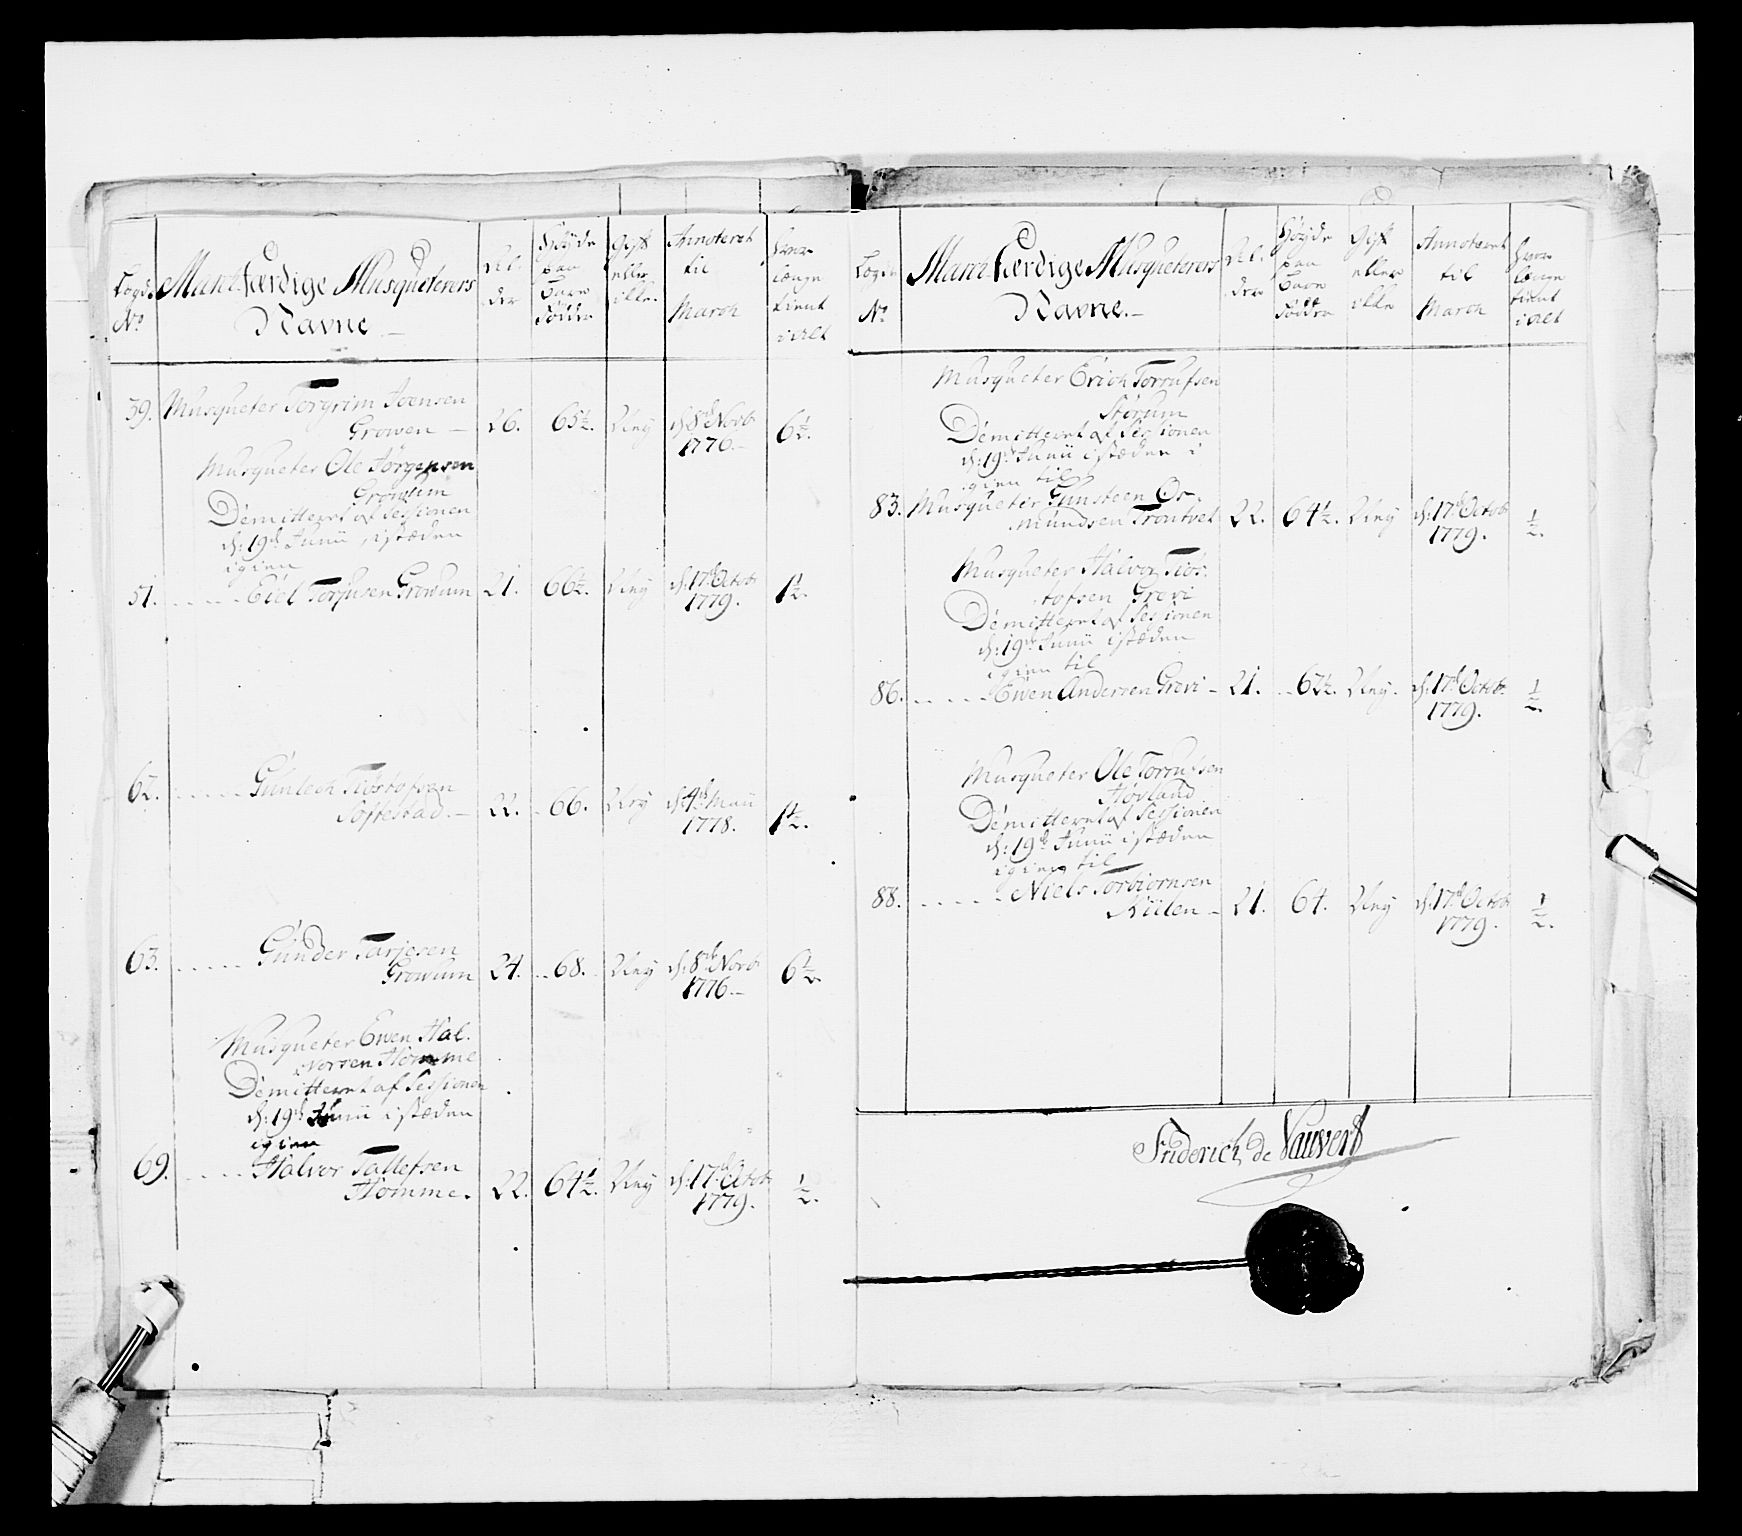 Lægds
No
March færdige Musqueterers
Navne.
Al-
der
Høyde
paa
Bare
Födder
Gift
eller
ikke.
Annoteret
til
March
Hvor
længe
tient
i alt
39. Musqueter Torgrim Joensen
Growen — 26. 65½. Ung d: 8de Novb: 1776. — 6½.
Musqueter Ole Jörgensen
Growum
Demitteret af Sessionen
d: 19de Junii, i stæden
igien
51. . . . . . Eiel Torjusen Growum 21. 66½. Ung d: 17de Octob: 1779. 1½.
62. . . . . . Gunlech Tiöstofsen
Softestad. — 22. 66. Ung d: 4de Maii 1778. 1½.
63. . . . . . Gunder Tarjesen
Growum 24. 68. Ung d: 8de Novb: 1776. — 6½.
Musqueter Ewen Hal-
vorsen Homme
Demitteret af Sessionen
d: 19de Junii i stæden
igien
69. . . . . Halvor Tallefsen
Homme. 22. 64½. Ung d: 17de Octob: 1779. ½.
Lægds
No
March færdige Musqueterers
Navne. —
Al-
der
Höyde
paa
Bare
Födder
Gift
eller
ikke
Annoteret
til
March
Hvor
længe
tient
i alt
Musqueter Erich Torrufsen
Storum
Demitteret af Sessionen
d: 19de Junii i stæden i
igien til
83. Musqueter Gunsteen Or-
mundsen Trontvet 22. 64½. Ung d: 17de Octob: 1779. ½.
Musqueter Halvor Tiös-
tofsen Grovi
Demitteret af Sessionen
d: 19de Junii i stæden
igien til
86. . . . . . Ewen Andersen Grovi — 21. 62½. Ung. d: 17de Octob: 1779. ½.
Musqueter Ole Torrufsen
Hovland
Demitteret af Sessionen
d: 19de Junii i stæden
igien til
88. . . . . . Niels Torbiornsen
Kiilen — 21. 64. Ung d: 17de Octob: 1779. ½.
Friderich de Vauvert